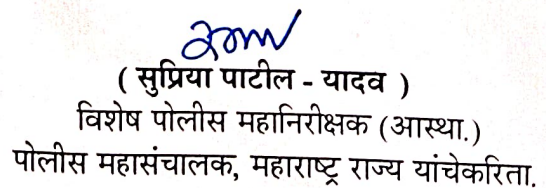 ( सुप्रिया पाटील - यादव )
विशेष पोलीस महानिरीक्षक (आस्था.)
पोलीस महासंचालक, महाराष्ट्र राज्य यांचेकरिता.